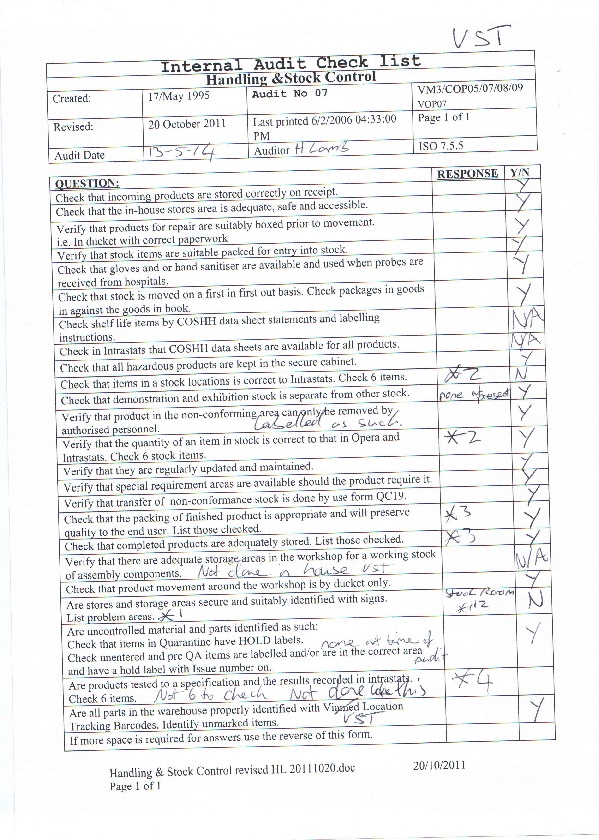 VST
Internal Audit Check list
Handling &Stock Control
Created: 17/May 1995 Audit No 07 VM3/COP05/07/08/09
VOP07
Revised: 20 October 2011 Last printed 6/2/2006 04:33:00 Page 1 of 1
PM
Audit Date 13-5-14 Auditor H Lamb ISO 7.5.5
QUESTION: RESPONSE Y/N
Check that incoming products are stored correctly on receipt. Y
Check that the in-house stores area is adequate, safe and accessible. Y
Verify that products for repair are suitably boxed prior to movement. Y
i.e. In ducket with correct paperwork
Verify that stock items are suitable packed for entry into stock. Y
Check that gloves and or hand sanitiser are available and used when probes are Y
received from hospitals.
Check that stock is moved on a first in first out basis. Check packages in goods Y
in against the goods in book.
Check shelf life items by COSHH data sheet statements and labelling N/A
instructions.
Check in Intrastats that COSHH data sheets are available for all products. N/A
Check that all hazardous products are kept in the secure cabinet. Y
Check that items in a stock locations is correct to Intrastats. Check 6 items. *2 N
Check that demonstration and exhibition stock is separate from other stock. none present Y
Verify that product in the non-conforming area can only be removed by Y
authorised personnel. Labelled as such.
Verify that the quantity of an item in stock is correct to that in Opera and *2 Y
Intrastats. Check 6 stock items.
Verify that they are regularly updated and maintained. Y
Verify that special requirement areas are available should the product require it. Y
Verify that transfer of non-conformance stock is done by use form QC19. Y
Check that the packing of finished product is appropriate and will preserve *3 Y
quality to the end user. List those checked.
Check that completed products are adequately stored. List those checked. *3 Y
Verify that there are adequate storage areas in the workshop for a working stock N/A
of assembly components. Not done in house VST
Check that product movement around the workshop is by ducket only. Y
Are stores and storage areas secure and suitably identified with signs. Stock Room N
List problem areas. *1
Are uncontrolled material and parts identified as such: Y
Check that items in Quarantine have HOLD labels. none at time of
Check unentered and pre QA items are labelled and/or are in the correct area audit
and have a hold label with Issue number on.
Are products tested to a specification and the results recorded in intrastats. *4
Check 6 items. Not 6 to check Not done like this
Are all parts in the warehouse properly identified with Location Y
Tracking Barcodes. Identify unmarked items. VST
If more space is required for answers use the reverse of this form.
Handling & Stock Control revised HL 20111020.doc 20/10/2011
Page 1 of 1